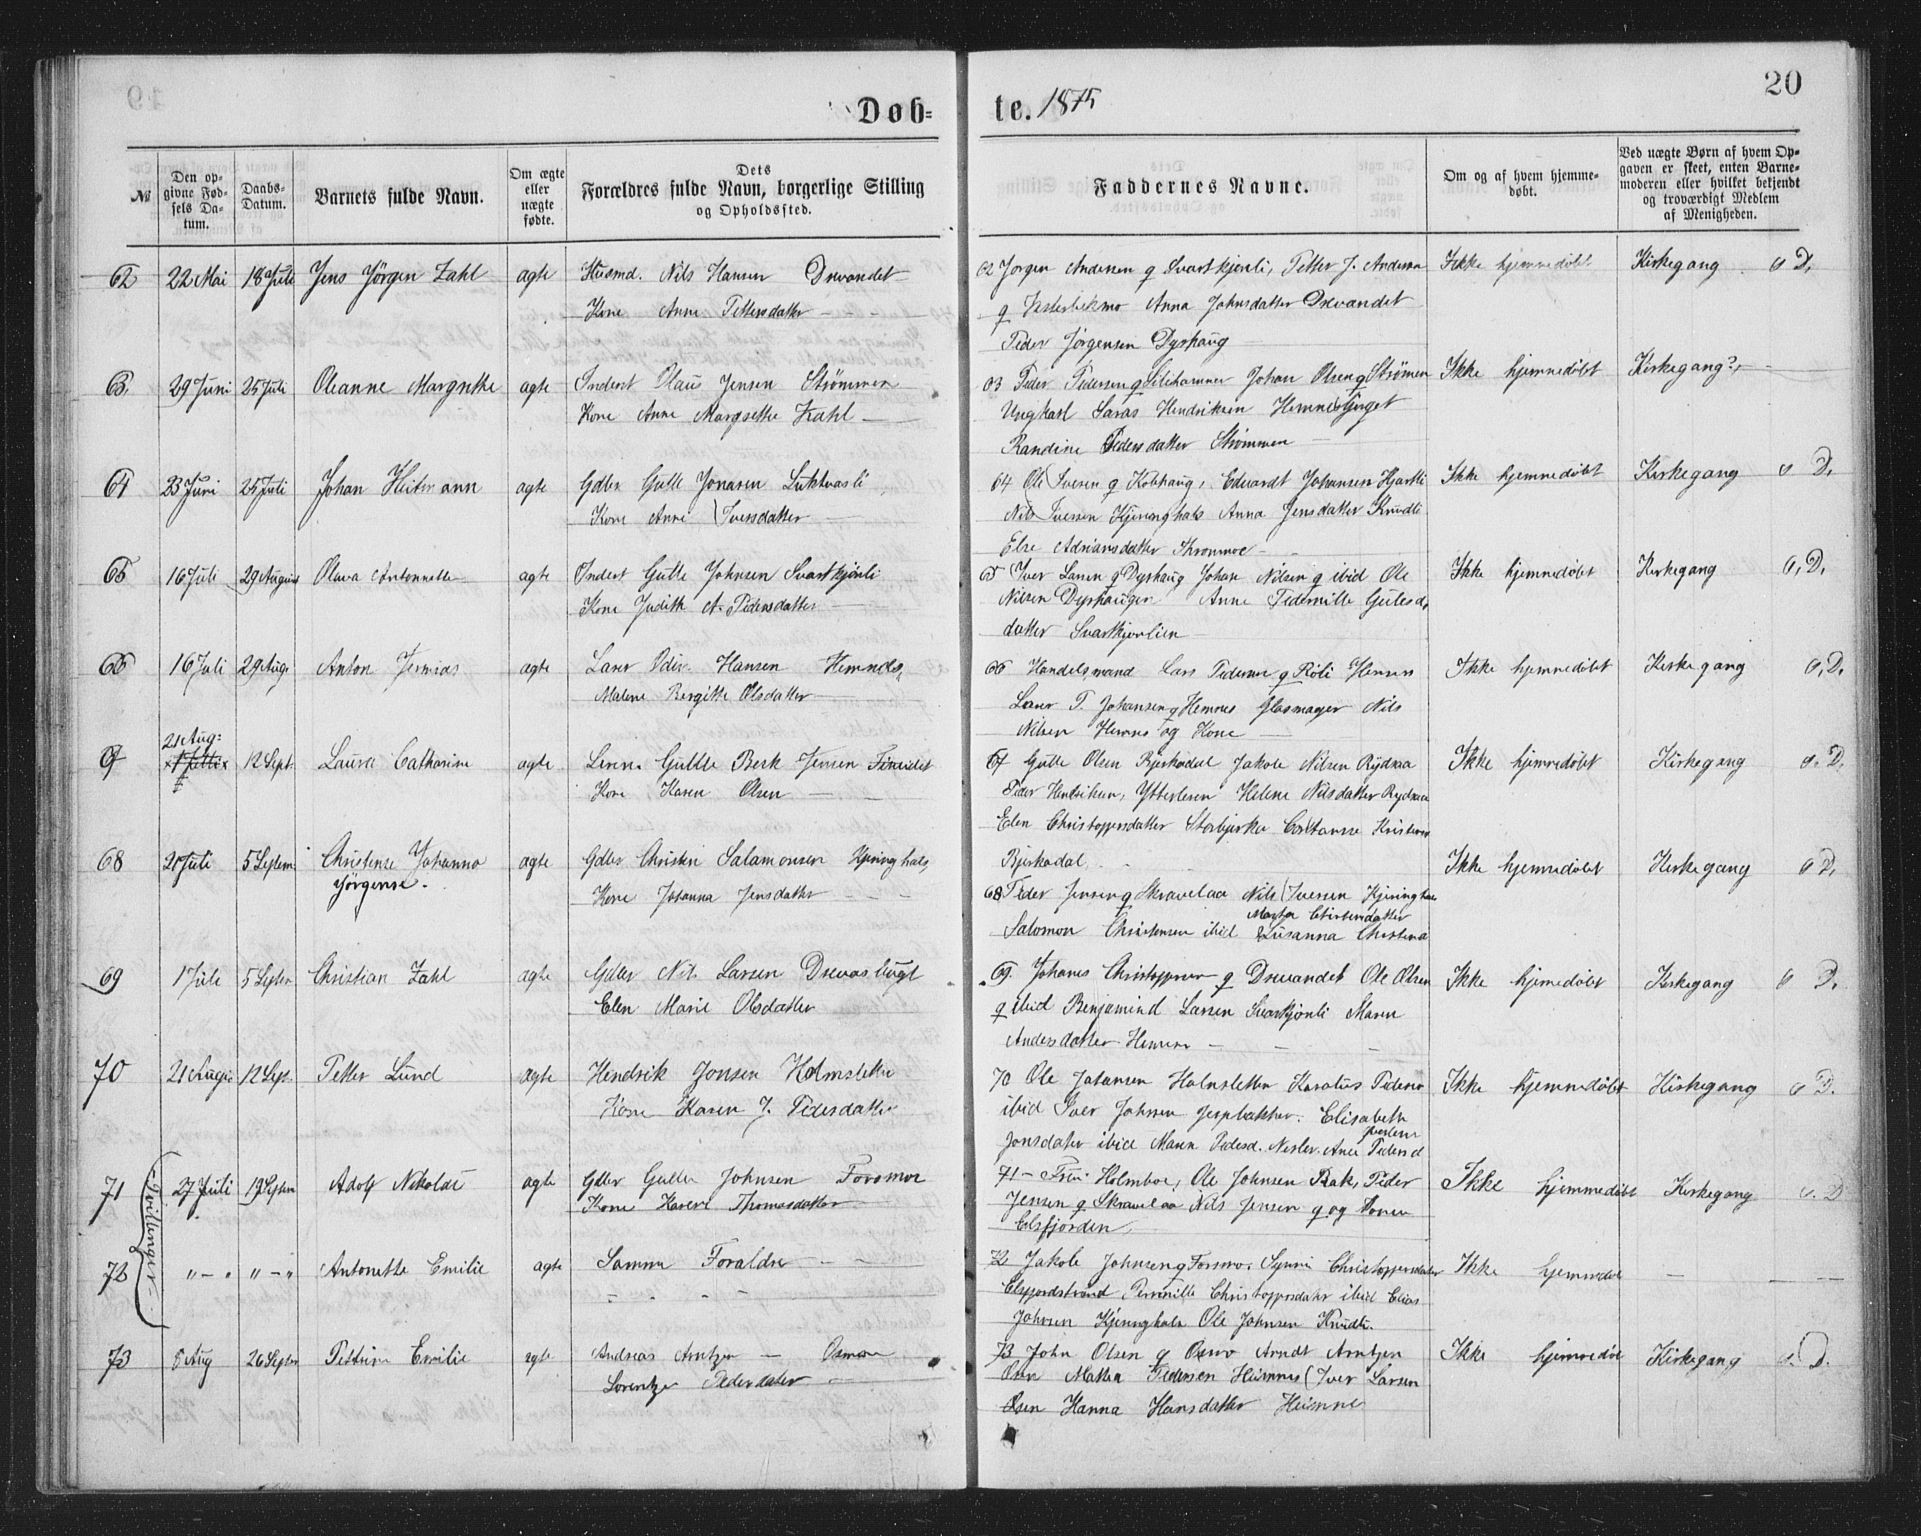 20
Døb=
te. 1875
№
Den op-
givne Fød-
sels Da-
tum.
Daabs-
Datum.
Barnets fulde Navn.
Om ægte
eller
uægte
fødte.
Dets
Forældres fulde Navn, borgerlige Stilling
og Opholdssted.
Faddernes Navne.
Om og af hvem hjemme-
døbt.
Ved uægte Børn af hvem Op-
gaven er skeet, enten Barne-
moderen eller hvilket bekjendt
og troværdigt Medlem
af Menigheden.
62 22 Mai 18 Juli Jens Jörgen Zahl agte Husmd. Nils Hansen Drevandet
Kone Anne Pettersdatter
62 Jorgen Andersen g Svartkjønli, Petter J. Andersen
g Anna Johnsdatter Drevandet
Peder Jørgensen Dyrhaug
Ikke hjemmedøbt Kirkegang o D.
63. 29 Juni 25 Juli Oleanne Margrethe agte Inderst Olaus Jensen Strømmen
Kone Anne Margrethe Zahl
63 Peder Pedersen g Johan Olsen g Strømen
Ungkarl Laras Hendriksen Hemnesbjerget
Randine Pedersdatter Strømmen
Ikke hjemmedøbt Kirkegang?
64 23 Juni 25 Juli Johan Heitmann agte Gdbr Gulle Jonasen Luktvasli
Kone Anne Iversdatter
64 Ole Iversen g Kobhaug, Eduardt Johansen Hjartli
Nils Iversen Kjeringhals Anna Jensdatter Knudli
Else Adriansdatter Kronmoe
Ikke hjemmedøbt Kirkegang o D.
65 16 Juli 29 August Olava Antonette agte Inderst Gulle Johnsen Svartkjønli
Kone Judith A. Pedersdatter
65 Iver Larsen g Dyrhaug Johan Nilsen g ibid Ole
Nilsen Dyrhaugen Anne Pedernille Gulesd,
datter Svartkjønlien
Ikke hjemmedøbt Kirkegang o, D.
66 16 Juli 29 Aug. Anton Jermias agte Larer Hansen Hemnes,
Malene Bergitte Olsdatter
66 Handelsmand Lars Pedersen g Røli Hemnes
Larer P. Johansen g Hemnes Glasmager Nils
Nilsen Hemnes og Kone
Ikke hjemmedøbt Kirkegang o, D.
21 Aug:
67 12 Sept. Laura Catharine agte Gullle Berk Jensen
Kone Karen Olsen
67 Gulle Olsen Bjerkadal Jakob Nilsen Rydsaa
Peder Hendriksen, Ytterleren Helene Nilsdatter Rydsaa
Elen Christophersdatter Storbjerka Constanse Kristense
Bjerkadal
Ikke hjemmedøbt Kirkegang o. D.
68 2 Juli 5 Septem Christense Johanna agte Gdbr Christen Salamonsen Kjeringhals,
Jørgense. Kone Johanna Jensdatter
68 Peder Jensen g Skravelaa Nils Iversen Kjeringhals
Martha Christensdatter
Salomon Christensen ibid Susanna Christina
Ikke hjemmedøbt Kirkegang o D.
69 1 Juli 5 Septbr Christian Zahl agte Gdbr Nils Larsen Drevasbugt
Elen Marie Olsdatter
69. Johanes Christophersen g Drevandet Ole Olsen
g ibid Benjamind Larsen Svartkjønli Maren
Andersdatter Hemnes
Ikke hjemedøbt Kirkegang o D.
70 21 Aug. 12 Sept. Petter Lund agte Hendrik Jonsen Holmsletten
Kone Karen J. Pedersdatter
70 Ole Johansen Holmsletten Karolius Pedersen
ibid Iver Johnsen Elisabeth
Jonsdater ibid Maren Pedersd. Anne Pedersd
Ikke hjemmedøbt Kirkegang o D.
Tvillinger
71 27 Juli 19 Septem Adolf Nikolai agte Gdbr Gulle Johnsen Forsmoe
Kone Karen Thomasdatter
71 - Fru Holmboe, Ole Johnsen Bak, Peder
Jensen g Skravelaa Nils Jensen g og Konen
Elsfjorden
Ikke hjemmedøbt Kirkegang o. D
72 „ - „ „ - „ Antonette Emilie agte Samme Foraldre
72 Jakob Johnsen g Forsmo. Synni Christophersdatter
Elsfjordstrand Pernille Christophersdatter ibid Elias
Johnsen Kjeringhals Ole Johnsen Knudli.
Ikke hjemmedøbt
73 8 Aug 26 Septbr Pettrine Emilie agte Andreas Arntzen Osmoe
Lorentze Pedersdatter
73 John Olsen g Osmo Arndt Arntzen
Osen Mathea Pedersen Heimnes Iver Larsen
Osen Hanna Hansdatter Heimnes
Ikke hjemmedøbt Kirkegang o. D.